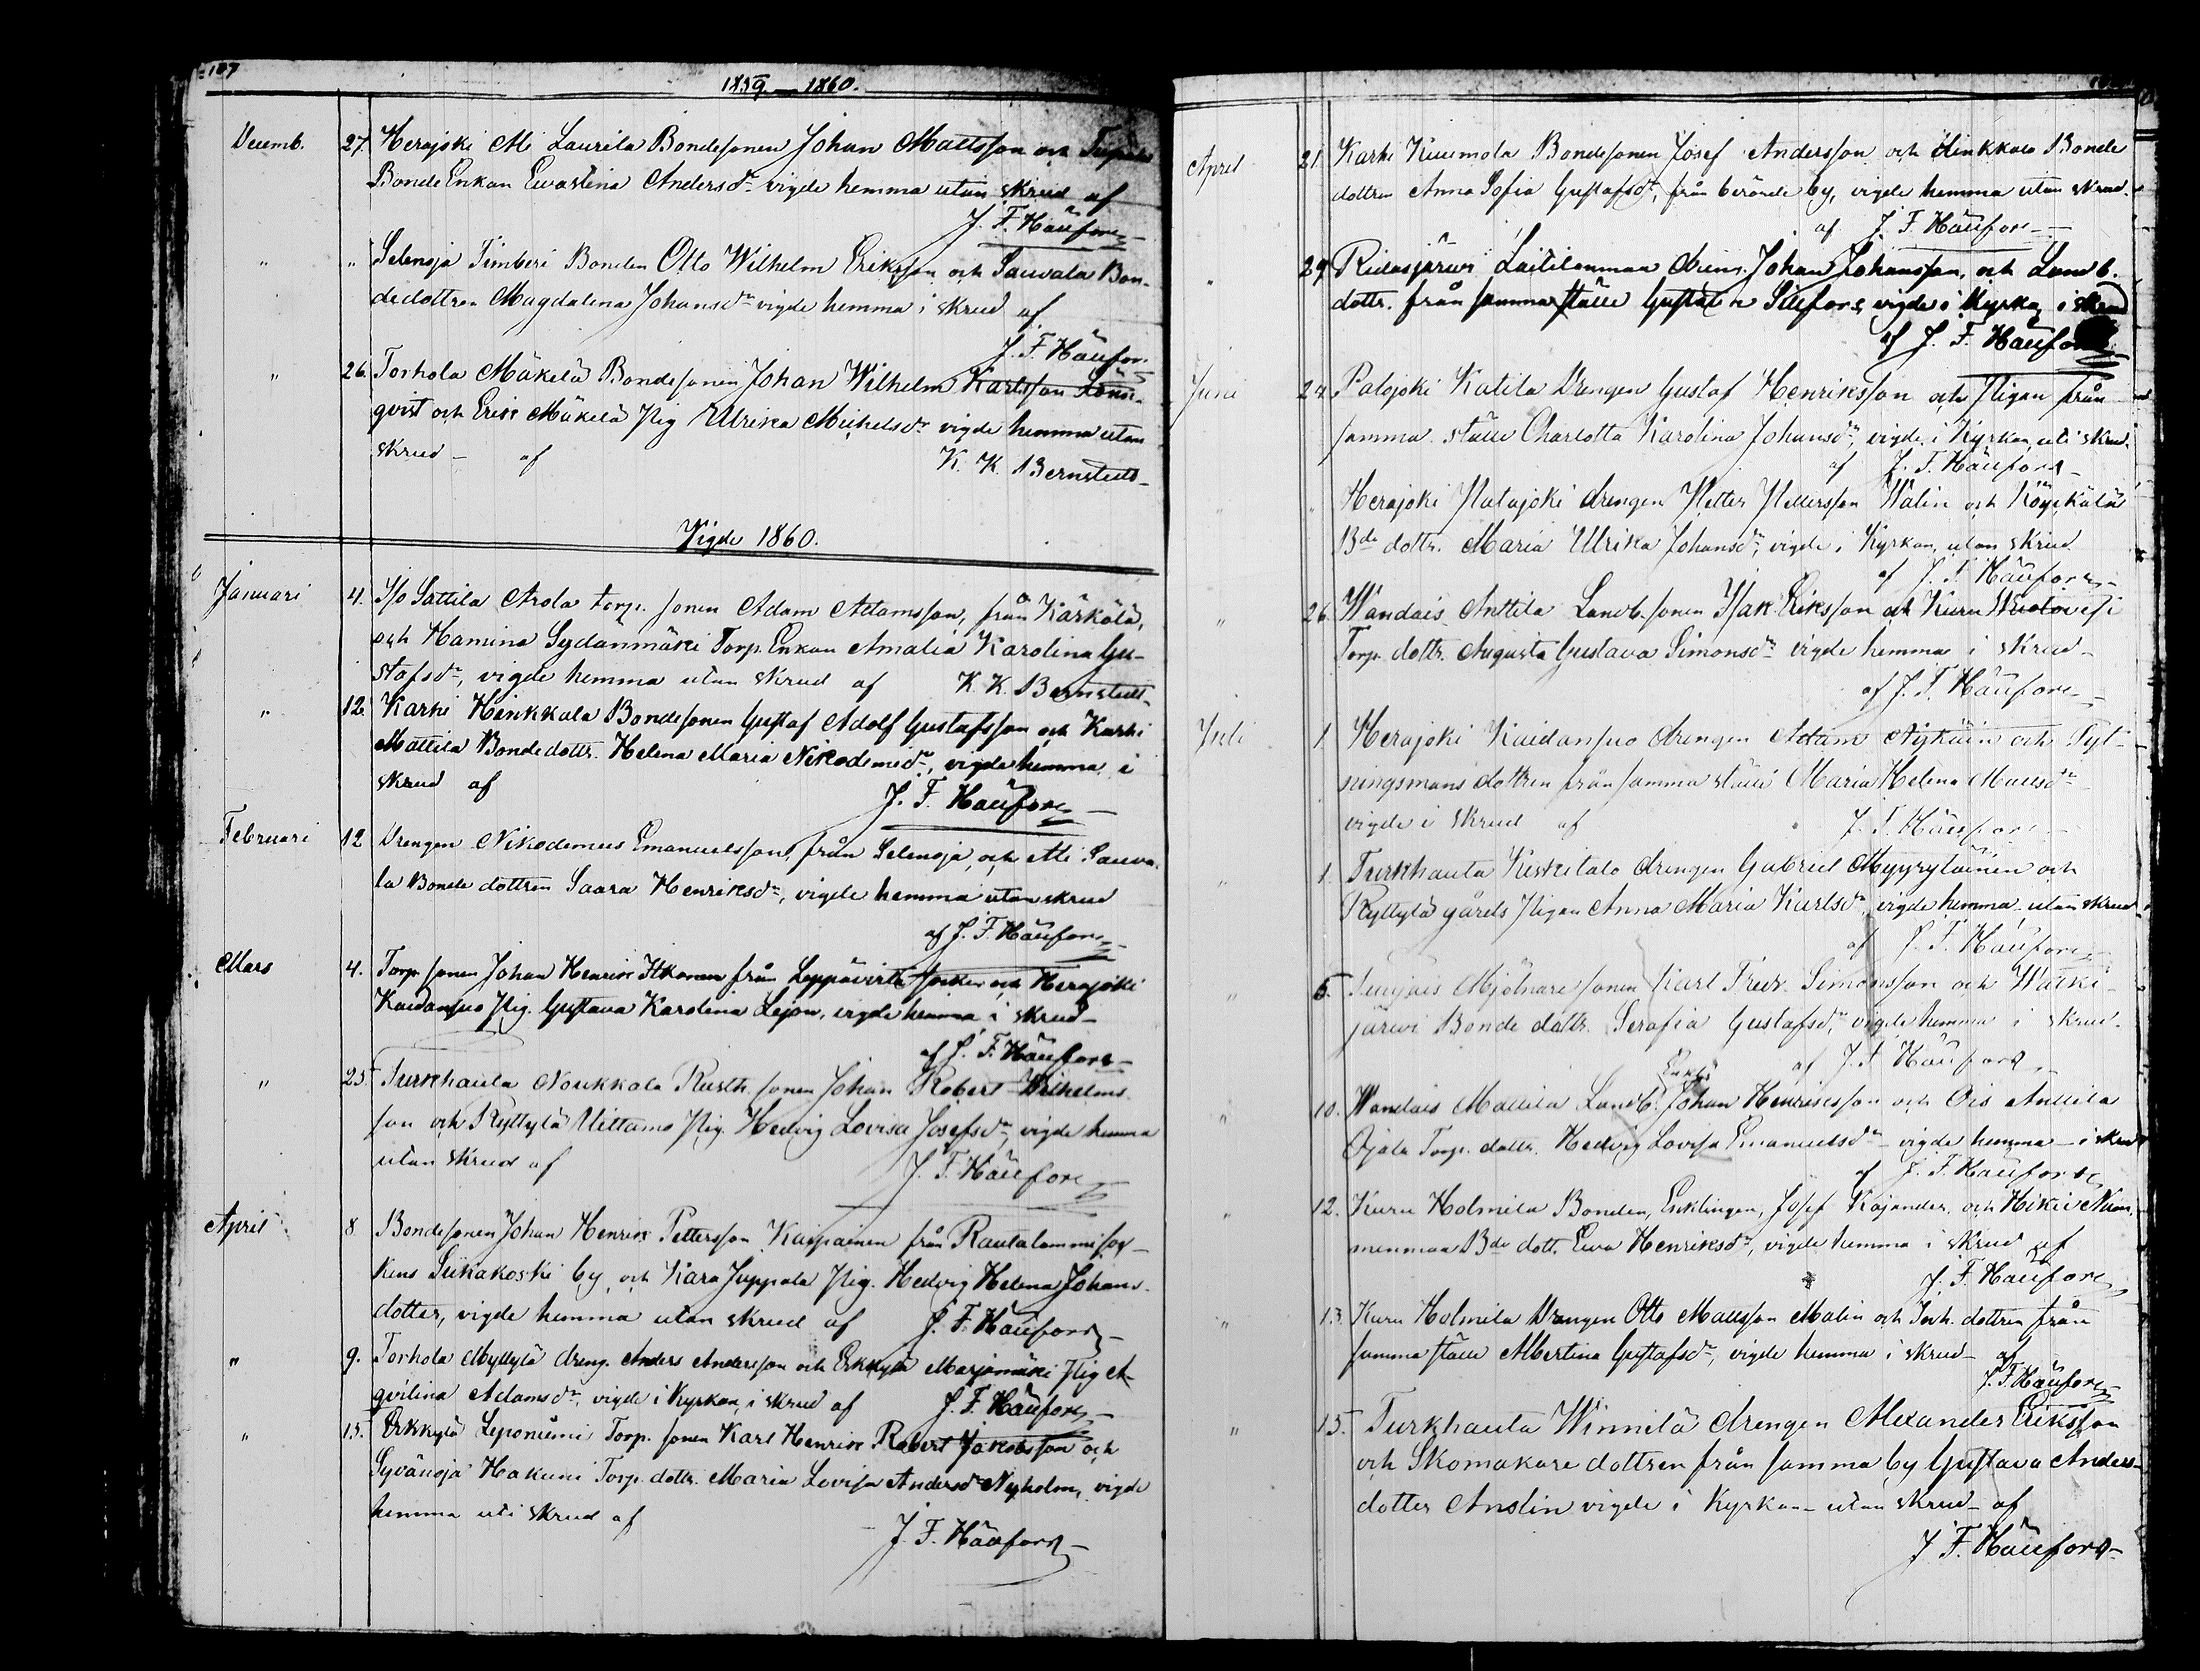 107
1859 — 1860.
Decemb. 27. Herajoki Ali Laurila Bondesonen Johan Mattsson och
Bonde Enkan Evastina Andersdr vigde hemma utan skrud af
J. F. Häufors
" " Selenoja Timberi Bonden Otto Wilhelm Eriksson och Sauvala Bon-
dedottren Magdalena Johansdr vigde hemma i skrud af
J. F. Häufors
" 26. Torhola Mäkelä Bondesonen Johan Wilhelm Karlsson
qvist och Erik Mäkelä Pig Ulrika Michelsdr vigde hemma utan
skrud – af K. K. Bernstedt
Vigde 1860.
Januari 4. Sattila Arola torp. sonen Adam Adamsson, från Kärkölä,
och Hamina Sydanmäki Torp. Enkan Amalia Karolina Gu-
stafsdr, vigde hemma utan skrud af K. K. Bernstedt
" 12. Karhi Heikkala Bondesonen Gustaf Adolf Gustafsson och Karhi
Mattila Bondedottr. Helena Maria Nikodemidr, vigde hemma i
skrud af J. F. Häufors
Februari 12 Drengen Nikodemus Emanuelsson, från Selenoja, och Ali Sauva-
la Bonde dottren Saara Henriksdr, vigde hemma utan skrud
af J. F. Häufors
Mars 4. Torp. sonen Johan Henrik Itkonen från Leppävirta socken och Herajoki
Kaidansuo Pig. Gustava Karolina Lejon, vigde hemma i skrud –
af J. F. Häufors
" 25. Turkhauta Noukkala Rusth. sonen Johan Robert Wilhelms-
son och Ryttylä Uittamo Pig. Hedvig Lovisa Josefsdr, vigde hemma
utan skrud af J. F. Häufors
April 8 Bondesonen Johan Henrik Pettersson Kaipainen från Rautalammi soc-
kens Siikakoski by, och Kara Juppala Pig. Hedvig Helena Johans-
dotter, vigde hemma utan skrud af J. F. Häufors
" 9. Torhola Myllylä dreng. Anders Andersson och Erkkylä Marjamäki Pig A-
qvilina Adamsdr, vigde i Kyrkan, i skrud af J. F. Häufors
" 15. Erkkylä Leponiemi Torp. sonen Karl Henrik Robert Jakobsson och
Syvänoja Hakuni Torp. dottr. Maria Lovisa Andersdr Nyholm, vigde
hemma uti skrud af
J. F. Häufors
April 21. Karhi Kuumola Bondesonen Josef Andersson och Heikkala Bonde
dottren Anna Sofia Gustafsdr, från berörde by, vigde hemma utan skrud.
af J. F. Häufors
" 29. Ridasjärvi Laitilanmaa Johan Johansson, och Landb.
dottr. från samma ställe Gustava Silfors, vigde i Kyrkan i skrud
af J. F. Häufors
Juni 24. Palojoki Katila Drengen Gustaf Henriksson och Pigan från
samma ställe Charlotta Karolina Johansdr, vigde i Kyrkan, uti skrud.
af J. F. Häufors
" " Herajoki Palajoki drengen Petter Pettersson Walin och
Bde dottr. Maria Ulrika Johansdr, vigde i Kyrkan, utan skrud
af J. F. Häufors
" 26. Wandais Anttila Landb. sonen Isak Eriksson och Kuru
Torp. dottr. Augusta Gustava Simonsdr vigde hemma i skrud –
af J. F. Häufors
Juli 1 Herajoki Kaidansuo drengen Adam och Tyt-
ningsmans dottren från samma ställe Maria Helena Mattsdr
vigde i skrud af J. F. Häufors
" 1. Turkhauta Keskitalo drengen Gabriel Myyryläinen och
Ryttylä gårds Pigan Anna Maria Karlsdr vigde hemma utan skrud
af J. F. Häufors
" 6. Mjölnare sonen Karl Fredr. Simonsson och
järvi Bonde dottr. Serafia Gustafsdr, vigde hemma i skrud.
af J. F. Häufors
" 10. Wandais Mattila Landb. Johan Henriksson och Ois Anttila
Ojala Torp. dottr. Hedvig Lovisa Emanuelsdr vigde hemma i skrud
af J. F. Häufors
" 12. Kuru Holmila Bonden, Enklingen, Josef Kajander, och Hikiä Num-
menmaa Bde dott. Eva Henriksdr, vigde hemma i skrud af
J. F. Häufors
" 13. Kuru Holmila Drengen Otto Mattsson Malin och Inh. dottren från
samma ställe Albertina Gustafsdr, vigde hemma i skrud – af
J. F. Häufors
" 15. Turkhauta Winnilä drengen Alexander Eriksson
och Skomakare dottren från samma by Gustava Anders-
dotter Anslin vigde i Kyrkan – utan skrud – af
J. F. Häufors